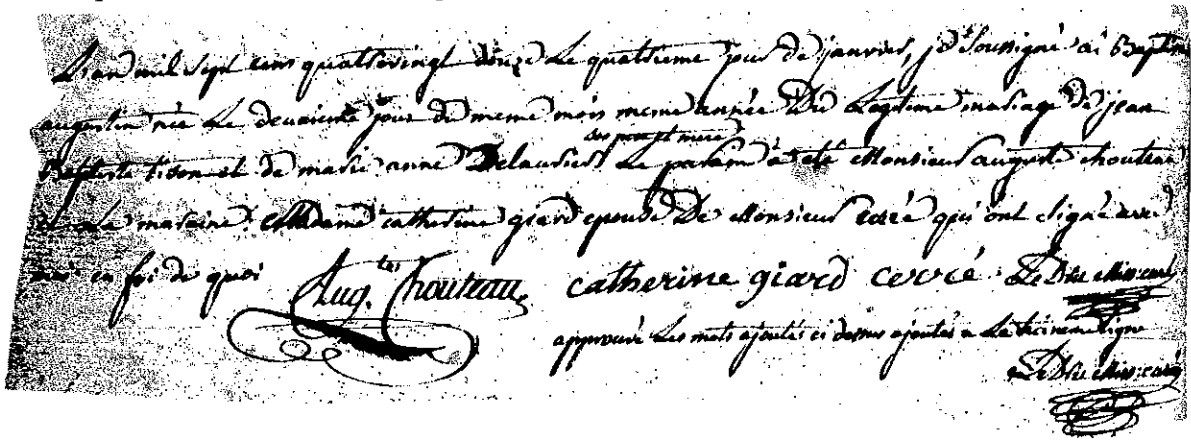 L'an mil sept cens quatrevingt douze Le quatrieme jour de janvier, je soussigné ai Baptisé
augustin née Le deuxieme jour de meme mois meme année Du Legitime mariage de jean
ses pere et mere
Baptiste tison et de marie anne Delaurier Le parain à eté Monsieur auguste chouteau
et La maraine Madame catherine giard epouse De Monsieur cerré qui ont signé avec
moi en foi de quoi
Aug.tes Chouteau catherine giard cerré Le Dru Miss: curé
approuvé Les mots ajoutés ci dessus ajoutés a La troisieme ligne
Le Dru Miss: curé